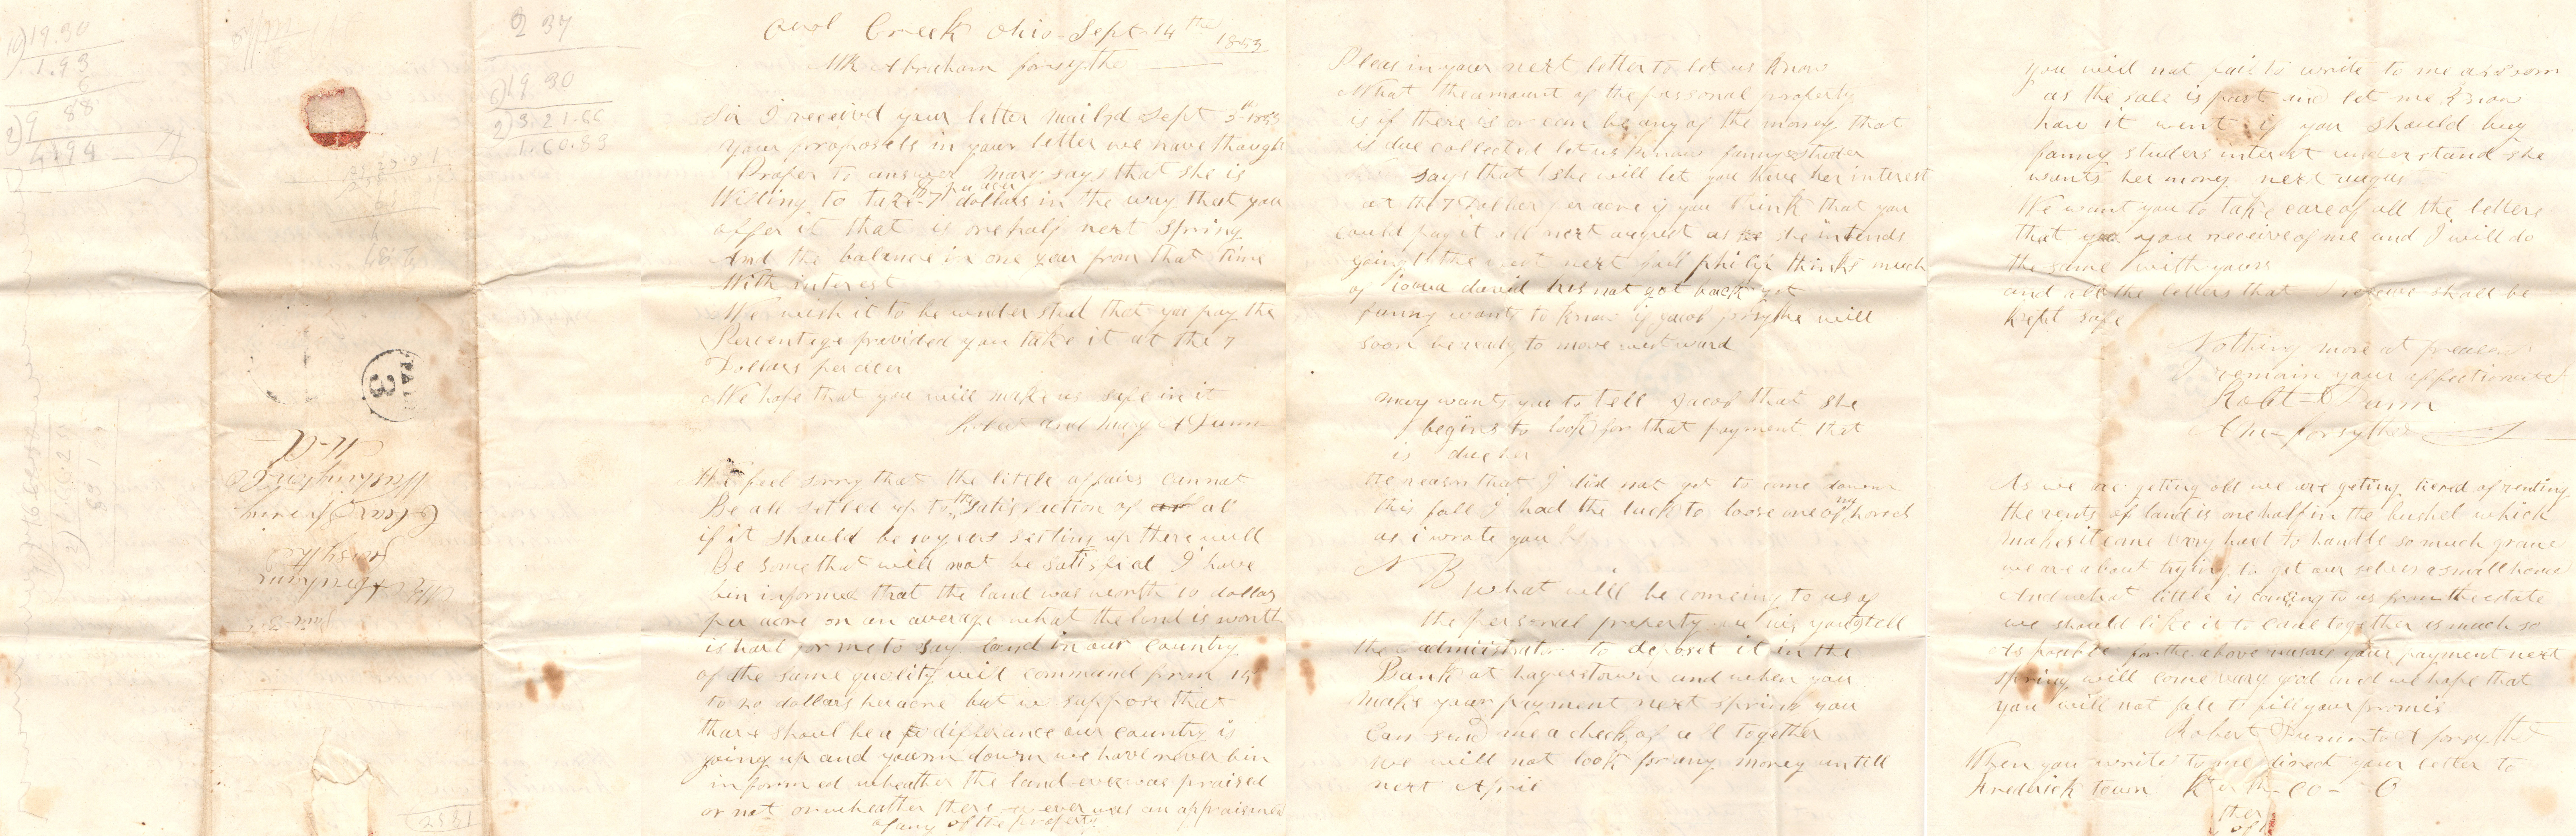 19.30
1.93
6
9 88
4.94
2 37
19 30
3.21.66
1.60.83
PAID
3
Mr Abraham
Forsythe
Clear Spring
Washington Co
M-d
Owl Creek Ohio Sept 14th 1853
Mr Abraham forsythe
Sir I received your letter mailed Sept 5th 1853
your proposels in your letter we have thought
Proper to answer mary says that she is
Willing to take 7 dollars per acer in the way that you
offer it that is one half next Spring
And the balance in one year from that time
With interest
We wish it to be under stud that you pay the
Percentage provided you take it at the 7
Dollars per acer
We hope that you will make us safe in it
Robert and Mary A Dunn
We feel sorry that the little affairs cannot
Be all setled up to the satisfaction of all
if it should be 10 years setting up there will
Be some that will not be satisfied I have
bin informed that the land was worth 10 dollars
per acre on an average what the land is worth
is hard for me to say land in our country
of the same quality will command from 15
to 20 dollars per acre but we suppose that
thare shoul be a differance our country is
going up and yourn down we have never bin
informed wheather the land ever was praised
or not or wheather there ever was an appraisment
of any of the property
Pleas in your next letter to let us know
What the amount of the parsonal property
is if there is or can be any of the money that
is due collected let us know fanny Studer
says that she will let you have her interest
at the 7 Dollars per acre if you think that you
could pay it all next august as she intends
going to the west next fall philip thinks much
of ioawa david has not got back yet
fanny want to know if jacob forsythe will
soon be ready to move west ward
mary wants you to tell Jacob that she
begins to look for that payment that
is due her
the reason that I did not get to come down
this fall I had the luck to loose one of my horses
as i wrote you
N B what will be comeing to us of
the personal property we wis you to tell
the admistrator to deposet it in the
Bank at hagerstown and when you
make your payment next spring you
Can send me a check of all together
We will not look for any money untill
next April
you will not fail to write to me as soon
as the sale is past and let me know
how it went if you should buy
fanny studers interest understand she
wants her money next augus
We want you to take care of all the letters
that you receive of me and I will do
the same with yours
and all the letters that I receive shall be
kept safe
Nothing more at preasen
remain your affectionate
Robt Dunn
Ahm forsythe
As we are geting old we are geting tiered of renting
the rents of land is one half in the bushel which
makes it come very hard to handle so much grane
we are about trying to get our selves a small home
And what little is coming to us from the estate
we should like it to come together as much so
As posible for the above reasons your payment next
spring will come very good and we hope that
you will not fale to fill your promis
Robert Dunn to A forsythe
When you write to me direct your letter to
Fredrick town K Co O